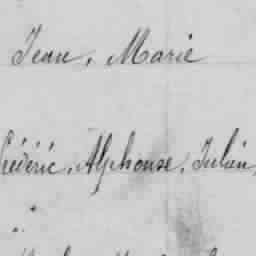 Jean, Marie
Frédéric, Alphonse, Julien,